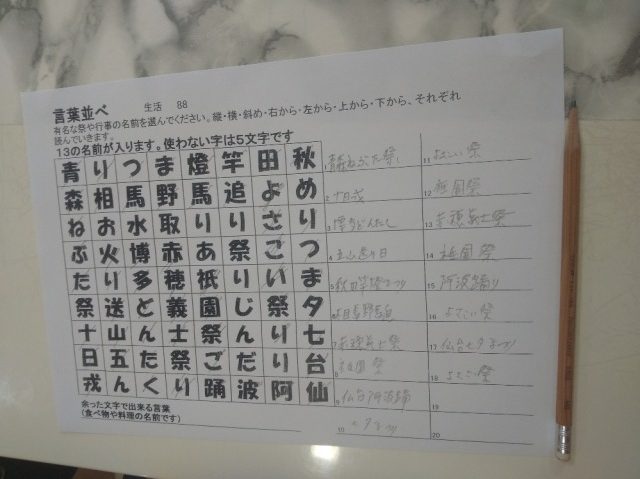 言葉並べ 生活 88
有名な祭や行事の名前を選んでください。縦・横・斜め・右から・左から・上から・下から、それぞれ
読んでいきます。
13の名前が入ります。使わない字は5文字です
青りつま燈竿田秋
森相馬野馬追よめ
ねお水取りりさり
ぶ火博赤あ祭こつ
たり多穂祇りいま
祭送ど義園じ祭夕
十山ん士祭んり七
日五た祭ごだり台
戎んくり踊波阿仙
余った文字で出来る言葉
(食べ物や料理の名前です)
1
2 十日戎
3
4
5 秋田竿燈まつり
6
7 赤穂義士祭
8 祇園祭
9 仙台阿波踊
10 七夕まつり
11 祭
12 祇園祭
13 赤穂義士祭
14 祇園祭
15 阿波踊り
16 祭
17 仙台七夕まつり
18 祭
19
20